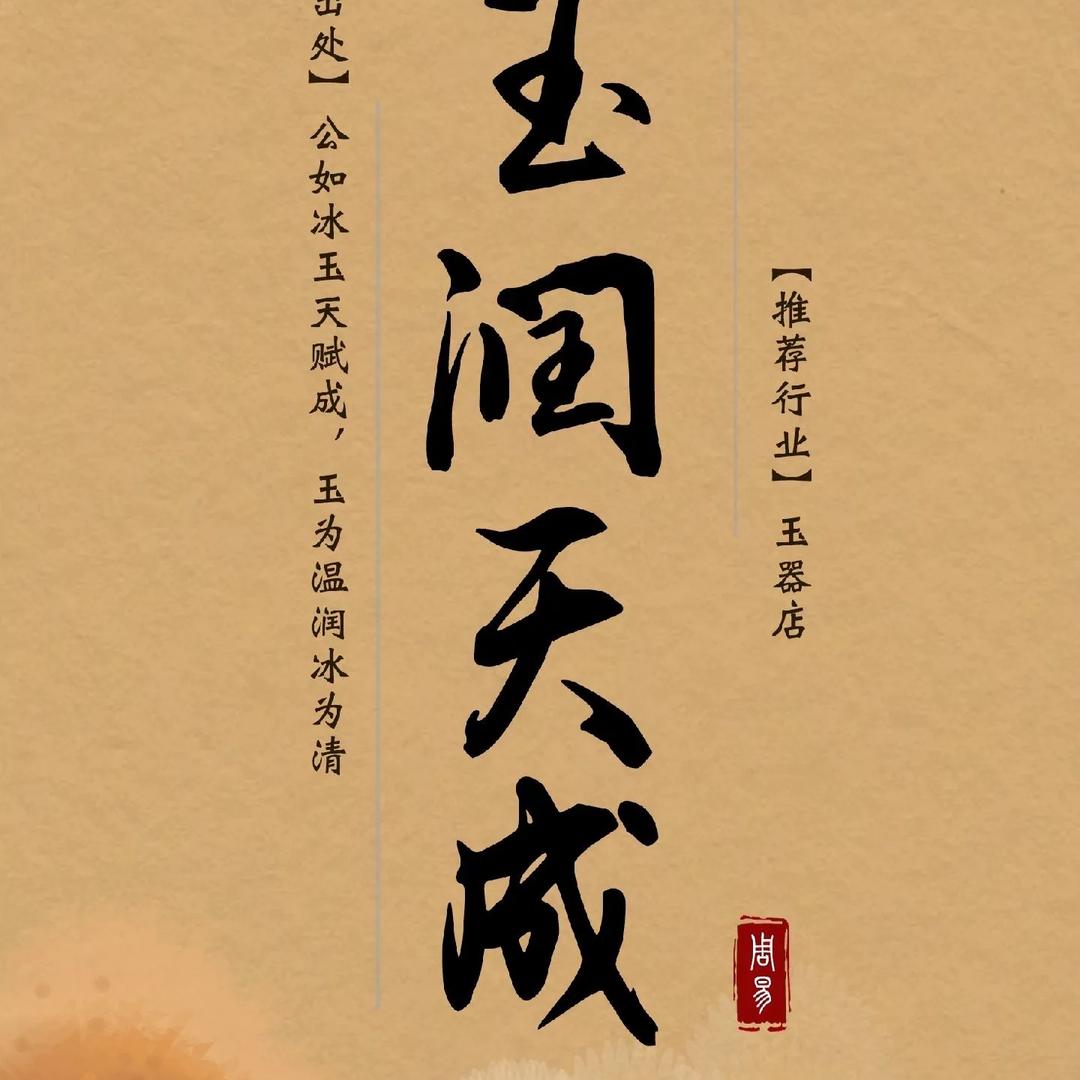 【推荐行业】 玉器店
玉润天成
出处】 公如冰玉天赋成，玉为温润冰为清
周易